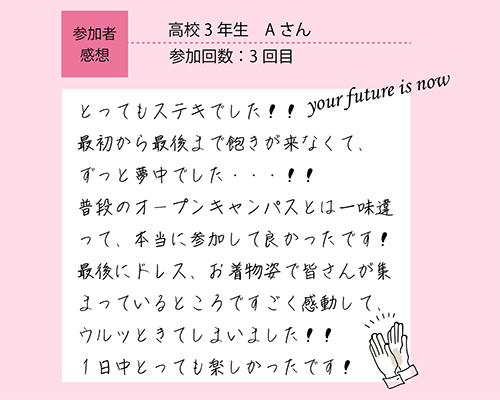 参加者
感想
高校3年生　Aさん
参加回数：3回目
your future is now
とってもステキでした！！
最初から最後まで飽きが来なくて、
ずっと夢中でした・・・！！
普段のオープンキャンパスとは一味違
って、本当に参加して良かったです！
最後にドレス、お着物姿で皆さんが集
まっているところですごく感動して、
ウルッときてしまいました！！
1日中とっても楽しかったです！